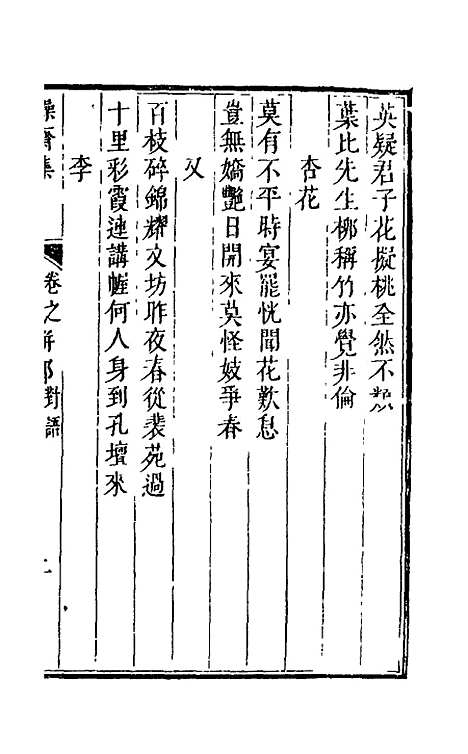 英疑君子花擬桃全然不類
葉比先生柳稱竹亦覺非倫
杏花
莫有不平時宴罷恍聞花歎息
豈無嬌艷日開來莫怪妓爭春
又
百枝碎錦耀文坊昨夜春從裴苑過
十里彩霞連講幄何人身到孔壇來
李
集
卷之
對語